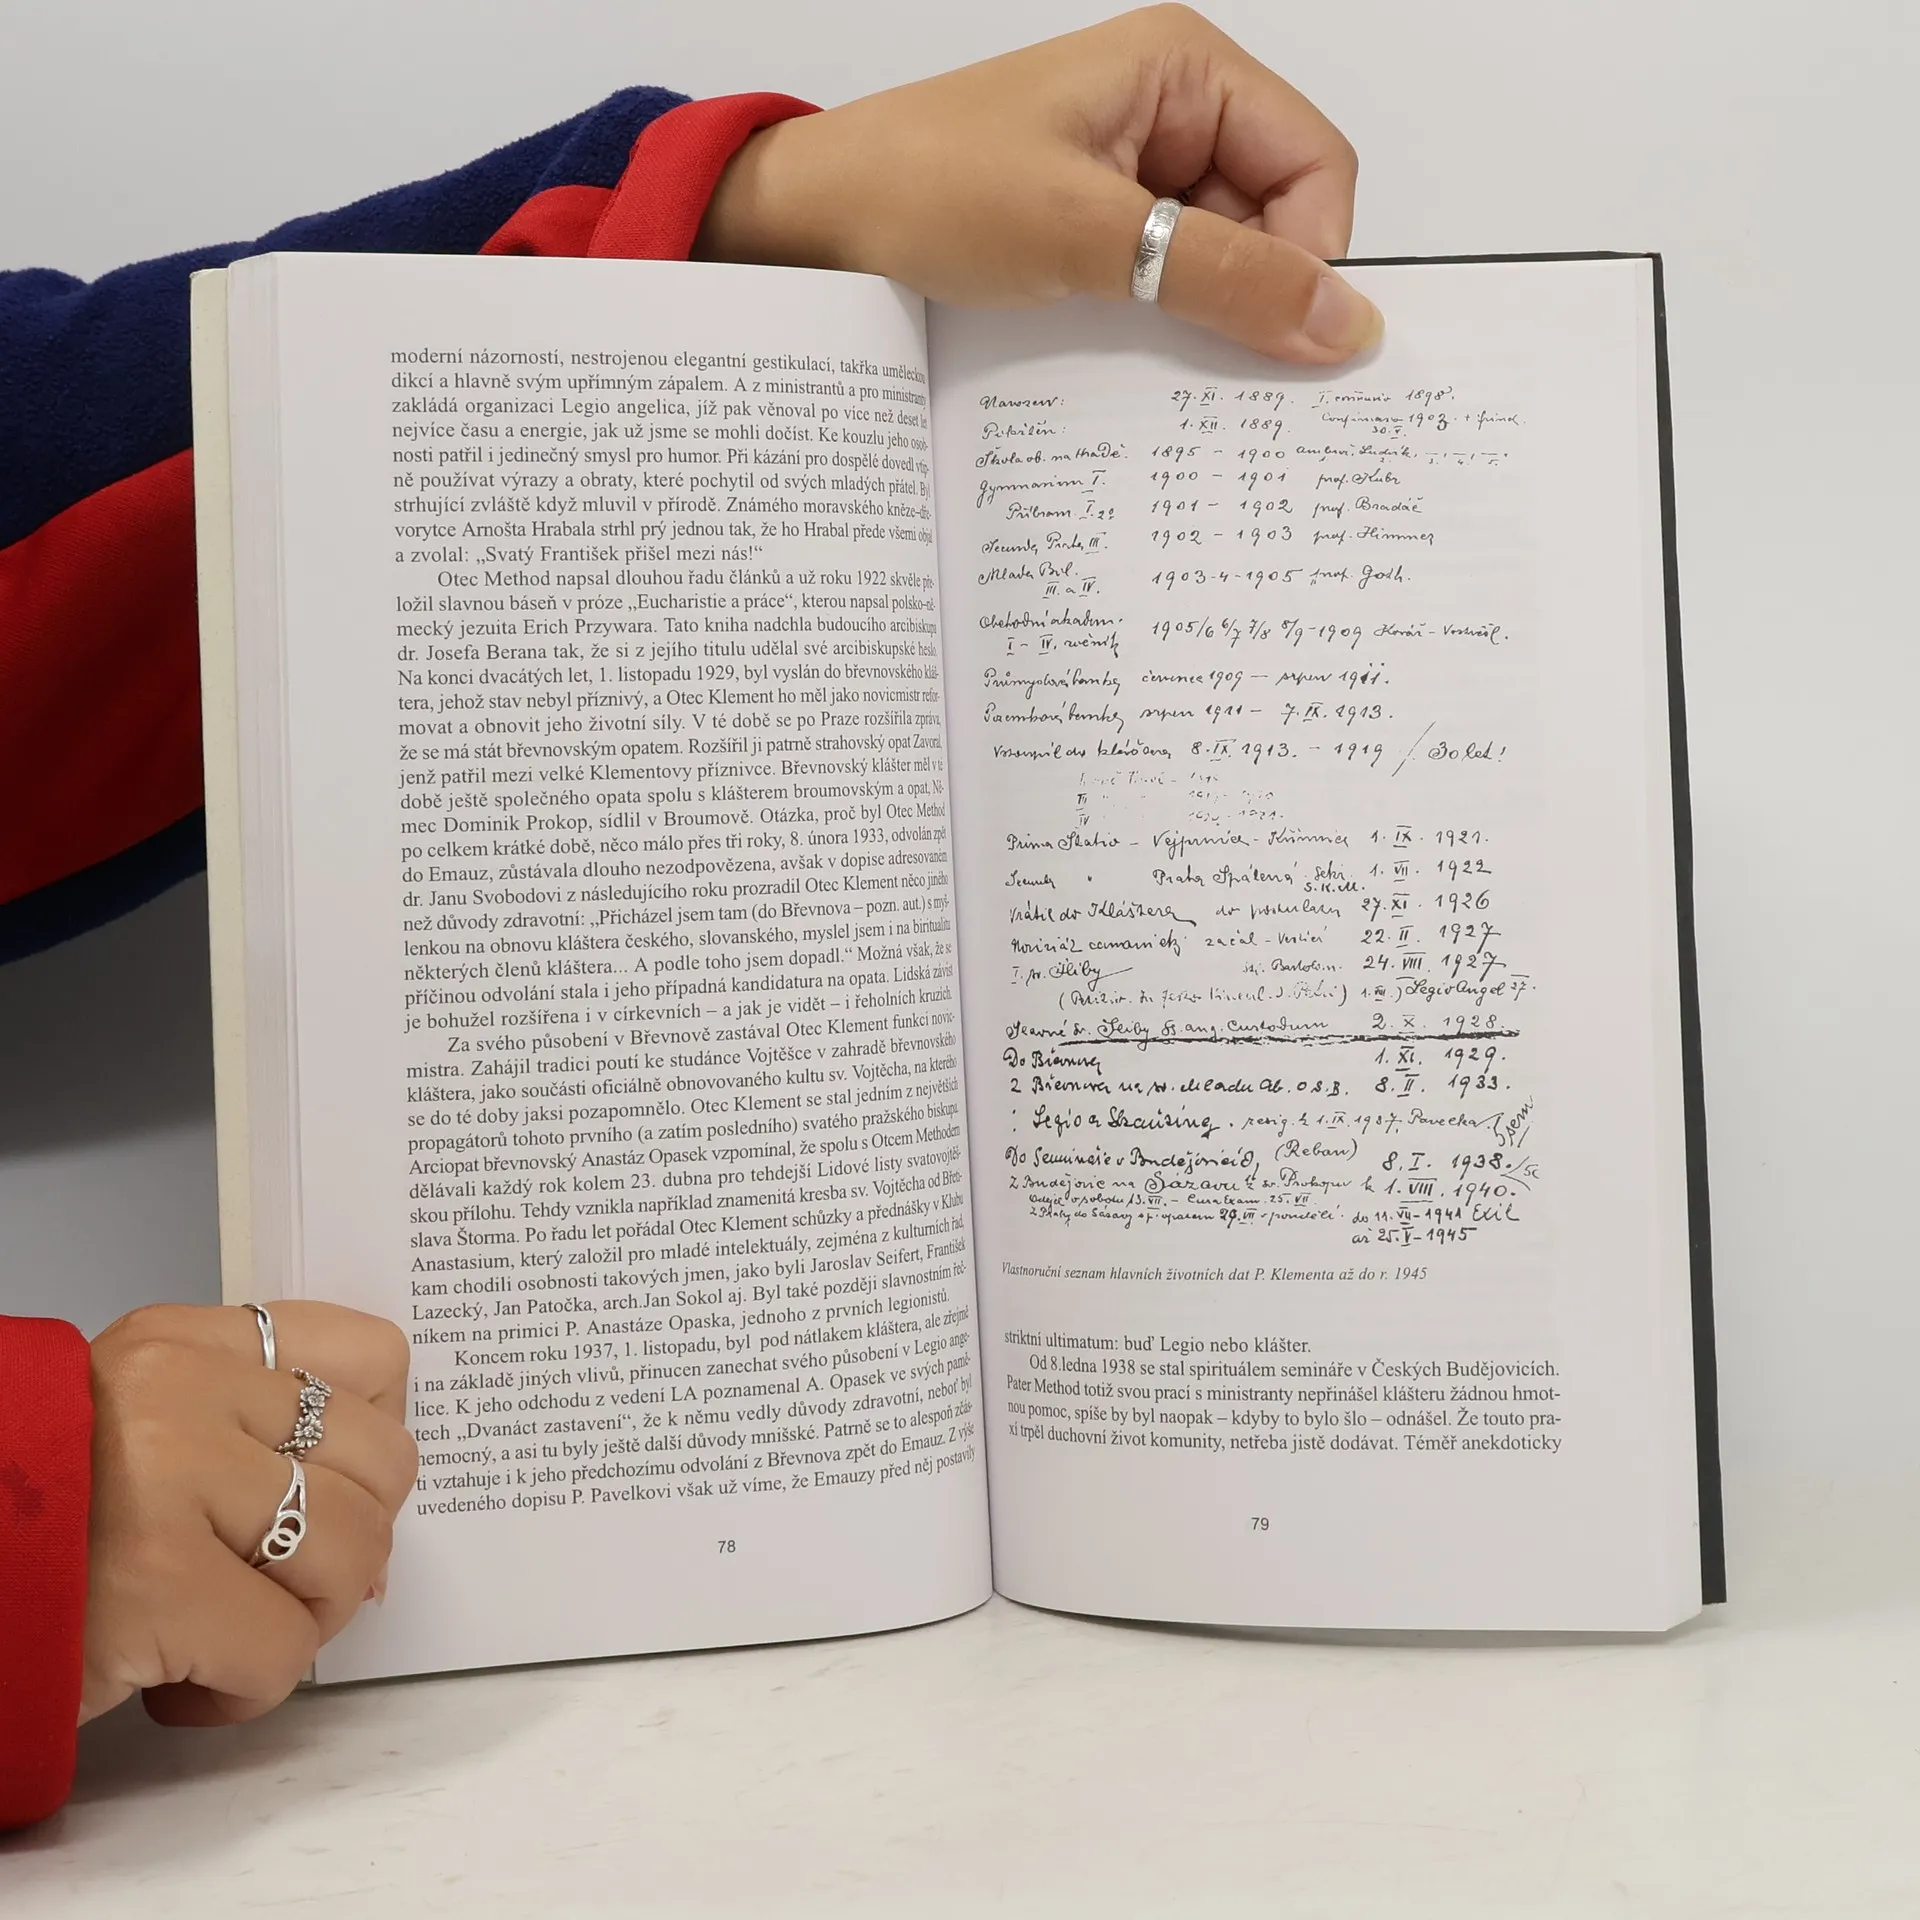 moderní názorností, nestrojenou elegantní gestikulací, takřka uměleckou
dikcí a hlavně svým upřímným zápalem. A z ministrantů a pro ministranty
zakládá organizaci Legio angelica, jíž pak věnoval po více než deset let
nejvíce času a energie, jak už jsme se mohli dočíst. Ke kouzlu jeho osob-
nosti patřil i jedinečný smysl pro humor. Při kázání pro dospělé dovedl vtip-
ně používat výrazy a obraty, které pochytil od svých mladých přátel. Byl
strhující zvláště když mluvil v přírodě. Známého moravského kněze–dře-
vorytce Arnošta Hrabala strhl prý jednou tak, že ho Hrabal přede všemi objal
a zvolal: „Svatý František přišel mezi nás!“
Otec Method napsal dlouhou řadu článků a už roku 1922 skvěle pře-
ložil slavnou báseň v próze „Eucharistie a práce“, kterou napsal polsko–ně-
mecký jezuita Erich Przywara. Tato kniha nadchla budoucího arcibiskupa
dr. Josefa Berana tak, že si z jejího titulu udělal své arcibiskupské heslo.
Na konci dvacátých let, 1. listopadu 1929, byl vyslán do břevnovského kláš-
tera, jehož stav nebyl příznivý, a Otec Klement ho měl jako novicmistr refor-
movat a obnovit jeho životní síly. V té době se po Praze rozšířila zpráva,
že se má stát břevnovským opatem. Rozšířil ji patrně strahovský opat Zavoral,
jenž patřil mezi velké Klementovy příznivce. Břevnovský klášter měl v té
době ještě společného opata spolu s klášterem broumovským a opat, Ně-
mec Dominik Prokop, sídlil v Broumově. Otázka, proč byl Otec Method
po celkem krátké době, něco málo přes tři roky, 8. února 1933, odvolán zpět
do Emauz, zůstávala dlouho nezodpovězena, avšak v dopise adresovaném
dr. Janu Svobodovi z následujícího roku prozradil Otec Klement něco jiného
než důvody zdravotní: „Přicházel jsem tam (do Břevnova – pozn. aut.) s myš-
lenkou na obnovu kláštera českého, slovanského, myslel jsem i na biritualitu
některých členů kláštera... A podle toho jsem dopadl.“ Možná však, že se
příčinou odvolání stala i jeho případná kandidatura na opata. Lidská závist
je bohužel rozšířena i v církevních – a jak je vidět – i řeholních kruzích.
Za svého působení v Břevnově zastával Otec Klement funkci novic-
mistra. Zahájil tradici poutí ke studánce Vojtěšce v zahradě břevnovského
kláštera, jako součásti oficiálně obnovovaného kultu sv. Vojtěcha, na kterého
se do té doby jaksi pozapomnělo. Otec Klement se stal jedním z největších
propagátorů tohoto prvního (a zatím posledního) svatého pražského biskupa.
Arciopat břevnovský Anastáz Opasek vzpomínal, že spolu s Otcem Methodem
dělávali každý rok kolem 23. dubna pro tehdejší Lidové listy svatovojtěš-
skou přílohu. Tehdy vznikla například znamenitá kresba sv. Vojtěcha od Břeti-
slava Štorma. Po řadu let pořádal Otec Klement schůzky a přednášky v Klubu
Anastasium, který založil pro mladé intelektuály, zejména z kulturních řad,
kam chodili osobnosti takových jmen, jako byli Jaroslav Seifert, František
Lazecký, Jan Patočka, arch.Jan Sokol aj. Byl také později slavnostním řeč-
níkem na primici P. Anastáze Opaska, jednoho z prvních legionistů.
Koncem roku 1937, 1. listopadu, byl pod nátlakem kláštera, ale zřejmě
i na základě jiných vlivů, přinucen zanechat svého působení v Legio ange-
lice. K jeho odchodu z vedení LA poznamenal A. Opasek ve svých pamě-
tech „Dvanáct zastavení“, že k němu vedly důvody zdravotní, neboť byl
nemocný, a asi tu byly ještě další důvody mnišské. Patrně se to alespoň zčás-
ti vztahuje i k jeho předchozímu odvolání z Břevnova zpět do Emauz. Z výše
uvedeného dopisu P. Pavelkovi však už víme, že Emauzy před něj postavily
78
Narozen: 27. XI. 1889. I. 1898.
Pokřtěn: 1. XII. 1889. 1903.
30. V.
Škola ob. na Hradě. 1895 – 1900
Gymnasium I. 1900 – 1901 prof. Kubr
Příbram. 1901 – 1902 prof. Bradáč
Secunda Praha III. 1902 – 1903 prof. Himmer
Mladá Bol. 1903-4-1905 prof. Goth.
III. a IV.
Obchodní akadem. 1905/6 6/7 7/8 8/9-1909
I – IV. ročník
Průmyslová banka červenec 1909 – srpen 1911.
Pozemková banka srpen 1911 – 7. IX. 1913.
Vstoupil do kláštera 8. IX. 1913. – 1919 / 30 let!
Prima Statio – Vejprnice – Křimice 1. IX. 1921.
Secunda " Praha Spálená 1. VII. 1922
S.K.M.
Vrátil do Kláštera do 27. XI. 1926
Noviciát začal 22. II. 1927
I. sv. Sliby Bartolom. 24. VIII. 1927
Legio Angel 27.
Slavné sv. Sliby SS. ang. Custodum 2. X. 1928.
Do Břevnova 1. XI. 1929.
Z Břevnova na 8. II. 1933.
: Legio a Skauting. resig. k 1. IX. 1937, Pavelka
Do Semináře v Budějovicích, (Reban) 8. I. 1938.
Z Budějovic na Sázavu k sv. Prokopu k 1. VIII. 1940.
Odjel v sobotu 13. VII. – Cura Exam. 25. VII.
Z Prahy do Sázavy s p. opatem 29. VII v pondělí. do 11. VII–1941 Exil
až 25. V–1945
Vlastnoruční seznam hlavních životních dat P. Klementa až do r. 1945
striktní ultimatum: buď Legio nebo klášter.
Od 8.ledna 1938 se stal spirituálem semináře v Českých Budějovicích.
Pater Method totiž svou prací s ministranty nepřinášel klášteru žádnou hmot-
nou pomoc, spíše by byl naopak – kdyby to bylo šlo – odnášel. Že touto pra-
xí trpěl duchovní život komunity, netřeba jistě dodávat. Téměř anekdoticky
79